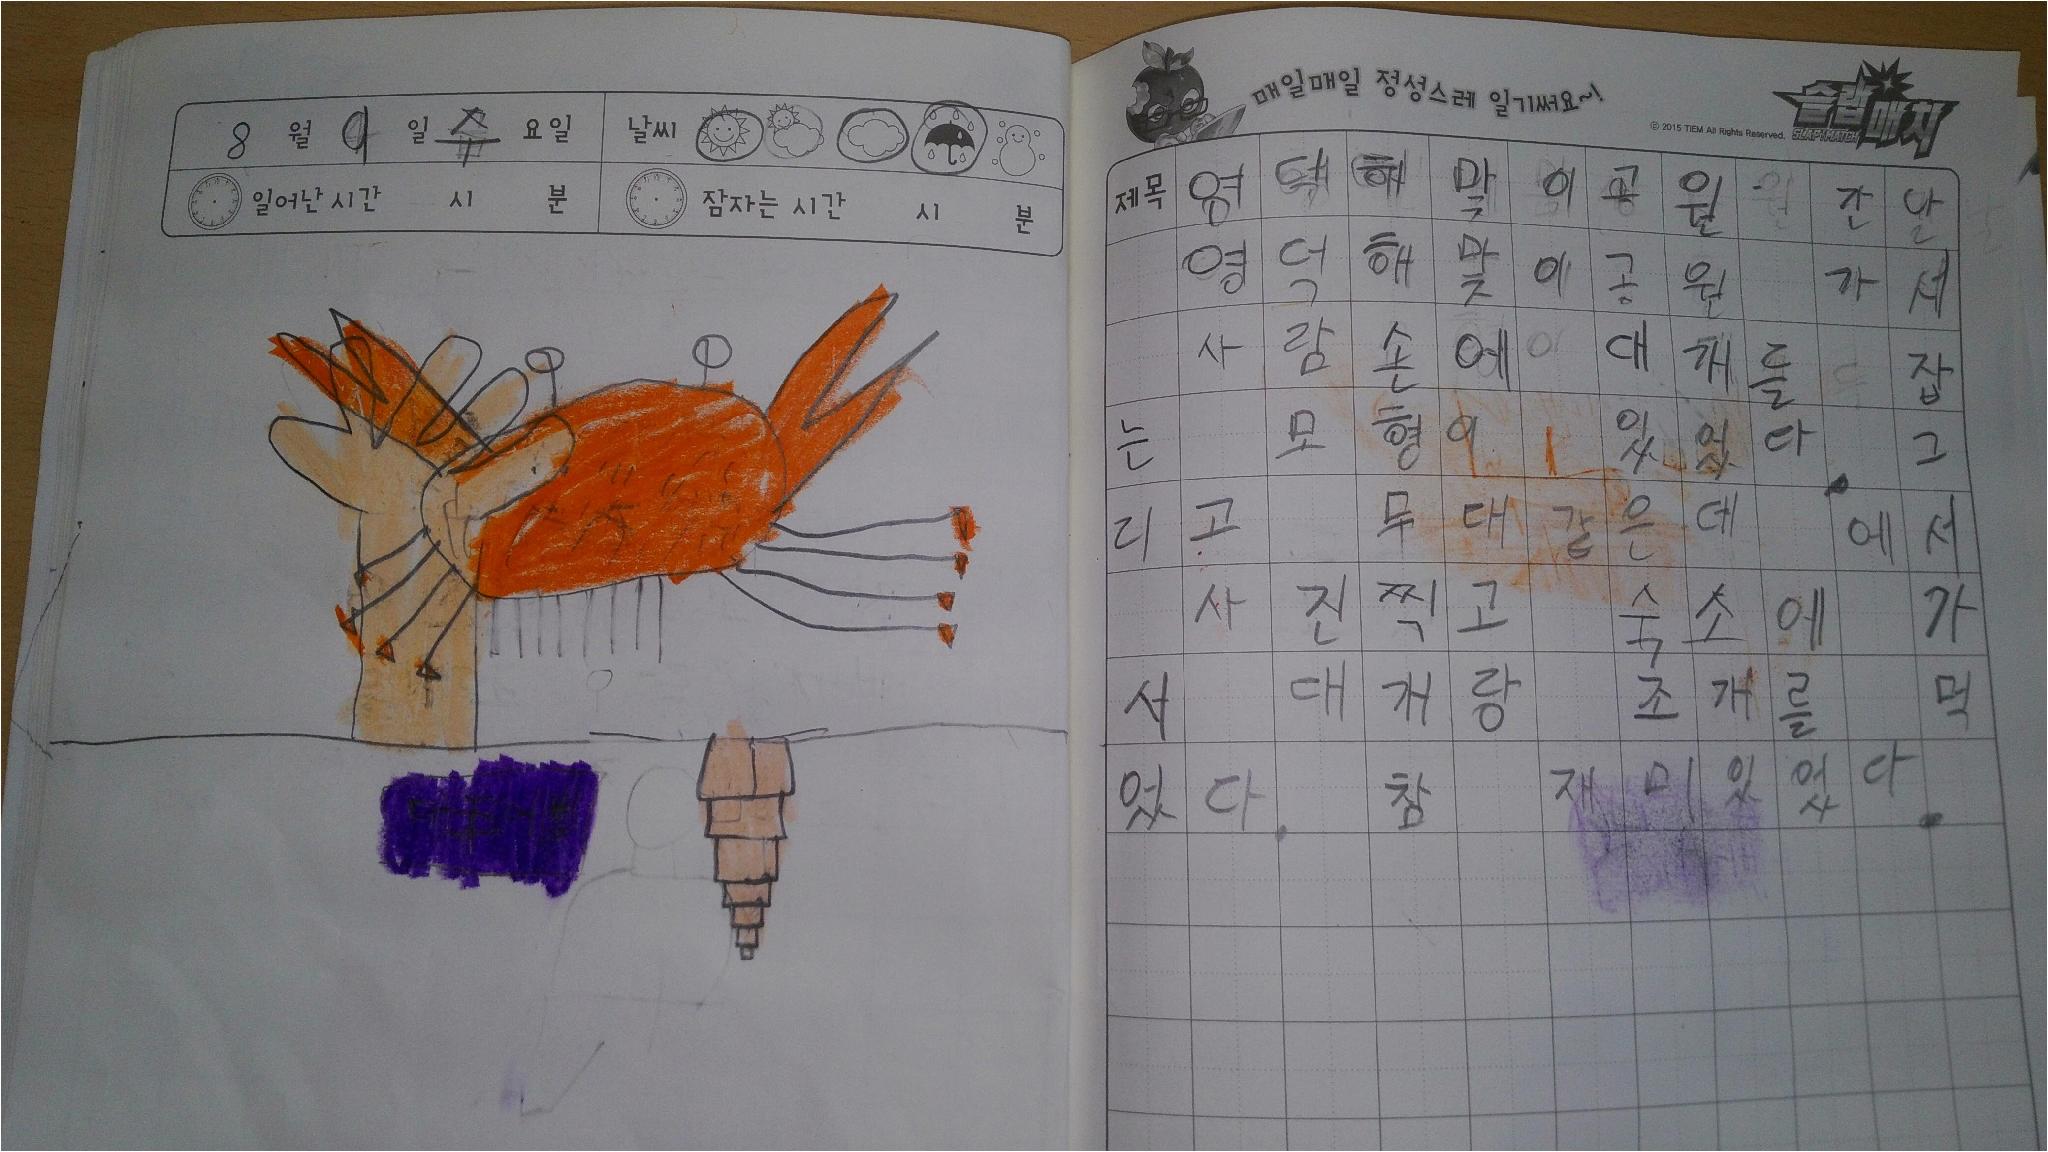 8 월 9 일 수 요일 날씨
일어난 시간 시 분 잠자는 시간 시 분
매일매일 정성스레 일기써요~!
슬랩매치
SLAP MATCH
© 2015 TIEM All Rights Reserved.
제목 영덕해맞이공원 간날
영덕해맞이공원 가서
사람손에 대개들 잡
는 모형이 있었다. 그
리고 무대같은데 에서
사진찍고 숙소에 가
서 대개랑 조개를 먹
었다. 참 재미있었다.